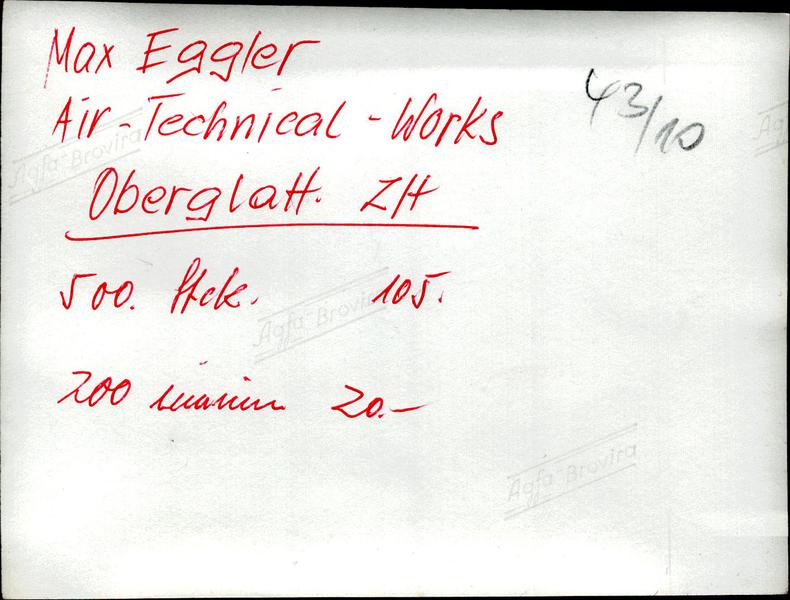 Max Eggler
Air-Technical-Works
43/10
Oberglatt. ZH
500. Stck. 105.
200 20.–
Agfa-Brovira
Agfa-Brovira
Agfa-Brovira
Ag